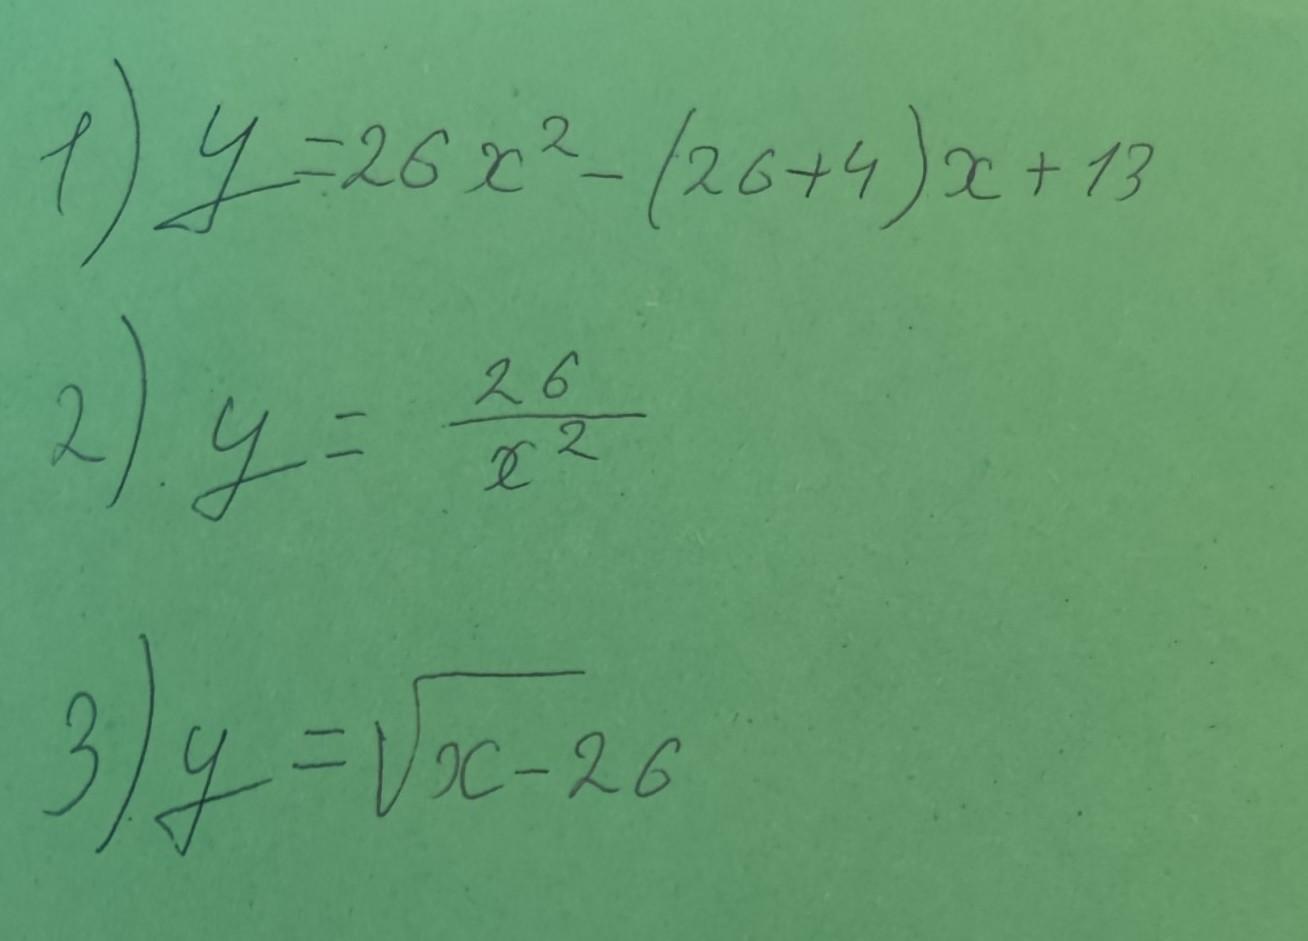 1) y = 26x² - (26+4)x + 13
2) y = 26/x²
3) y = √x-26